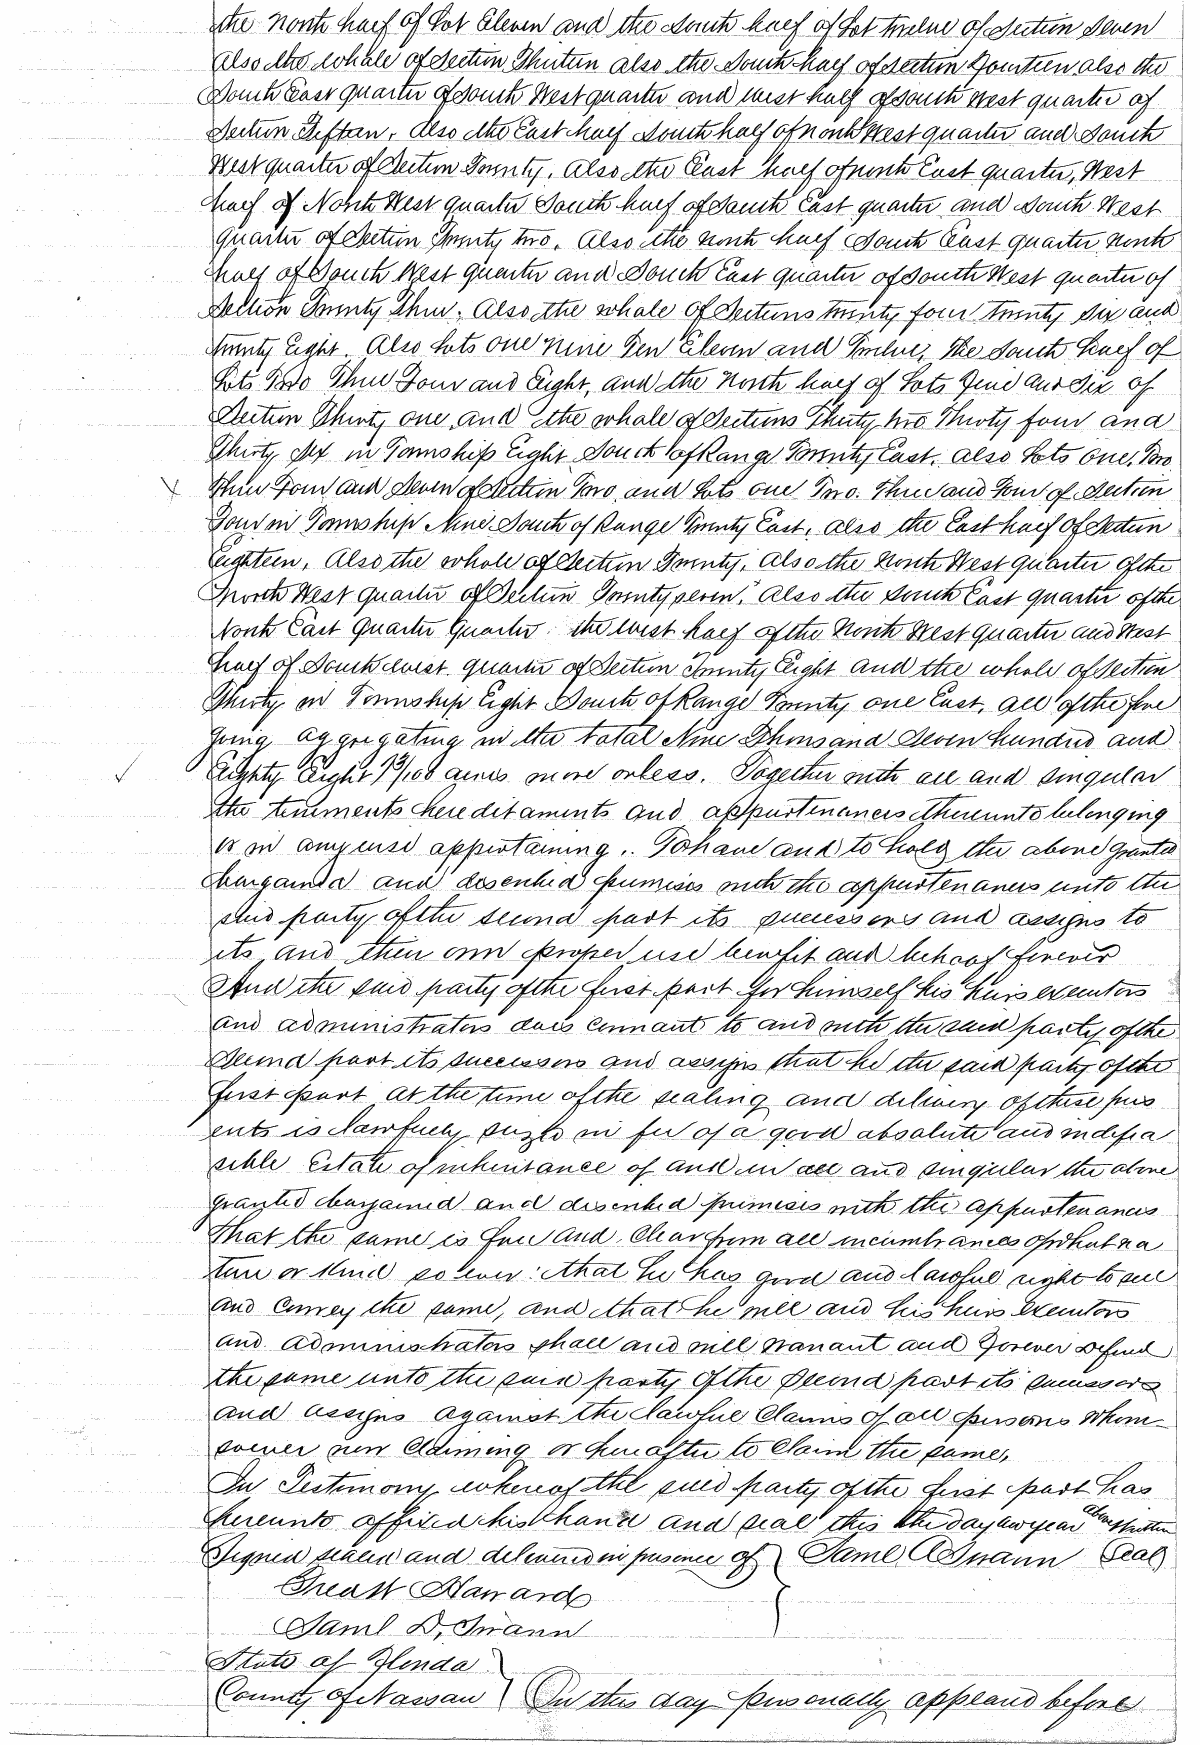 the North half of Lot Eleven and the South half of Lot twelve of Section Seven
also the whole of Section Thirteen also the South half of Section Fourteen also the
South East quarter of South West quarter and west half of South West quarter of
Section Fifteen, also the East half South half of North West quarter and South
West quarter of Section Twenty. Also the East half of north East quarter, West
half of North West quarter South half of South East quarter and South West
quarter of Section Twenty two. Also the north half South East quarter north
half of South West quarter and South East quarter of South West quarter of
Section Twenty Three. Also the whole of Sections twenty four twenty six and
twenty Eight. Also Lots one nine Ten Eleven and Twelve, The South half of
Lots Two Three Four and Eight, and the North half of Lots Five and Six of
Section Thirty one and the whole of Sections Thirty two Thirty four and
Thirty Six in Township Eight South of Range Twenty East. also Lots one, Two
Three Four and Seven of Section Two and Lots one Two. Three and Four of Section
Four in Township Nine South of Range Twenty East, also the East half of Section
Eighteen, Also the whole of Section Twenty, also the North West quarter of the
North West quarter of Section Twenty seven, also the South East quarter of the
North East Quarter Quarter the west half of the North West Quarter and West
half of South west quarter of Section Twenty Eight and the whole of Section
Thirty in Township Eight South of Range Twenty one East, all of the fore
going aggregating in the total Nine Thousand Seven hundred and
Eighty Eight 13/100 acres more or less. Together with all and singular
the tenements hereditaments and appurtenances thereunto belonging
or in anywise appertaining. To have and to hold the above granted
bargained and described premises with the appurtenances unto the
said party of the second part its successors and assigns to
its and their own proper use benefit and behoof forever
And the said party of the first part for himself his heirs executors
and administrators does covenant to and with the said party of the
Second part its successors and assigns that he the said party of the
first part at the time of the sealing and delivery of these pres
ents is lawfully seized in fee of a good absolute and indefea
sible Estate of inheritance of and in all and singular the above
granted bargained and described premises with the appurtenances
that the same is free and clear from all incumbrances of what na
ture or kind so ever: that he has good and lawful right to sell
and convey the same, and that he will and his heirs executors
and administrators shall and will warrant and forever defend
the same unto the said party of the Second part its successors
and assigns against the lawful claims of all persons whom
soever now claiming or hereafter to claim the same,
In Testimony whereof the said party of the first part has
hereunto affixed his hand and seal this the day and year above written
Signed sealed and delivered in presence of } Saml A Swann (Seal)
Harvard
Saml D, Swann
State of Florida
County of Nassau } On this day personally appeared before